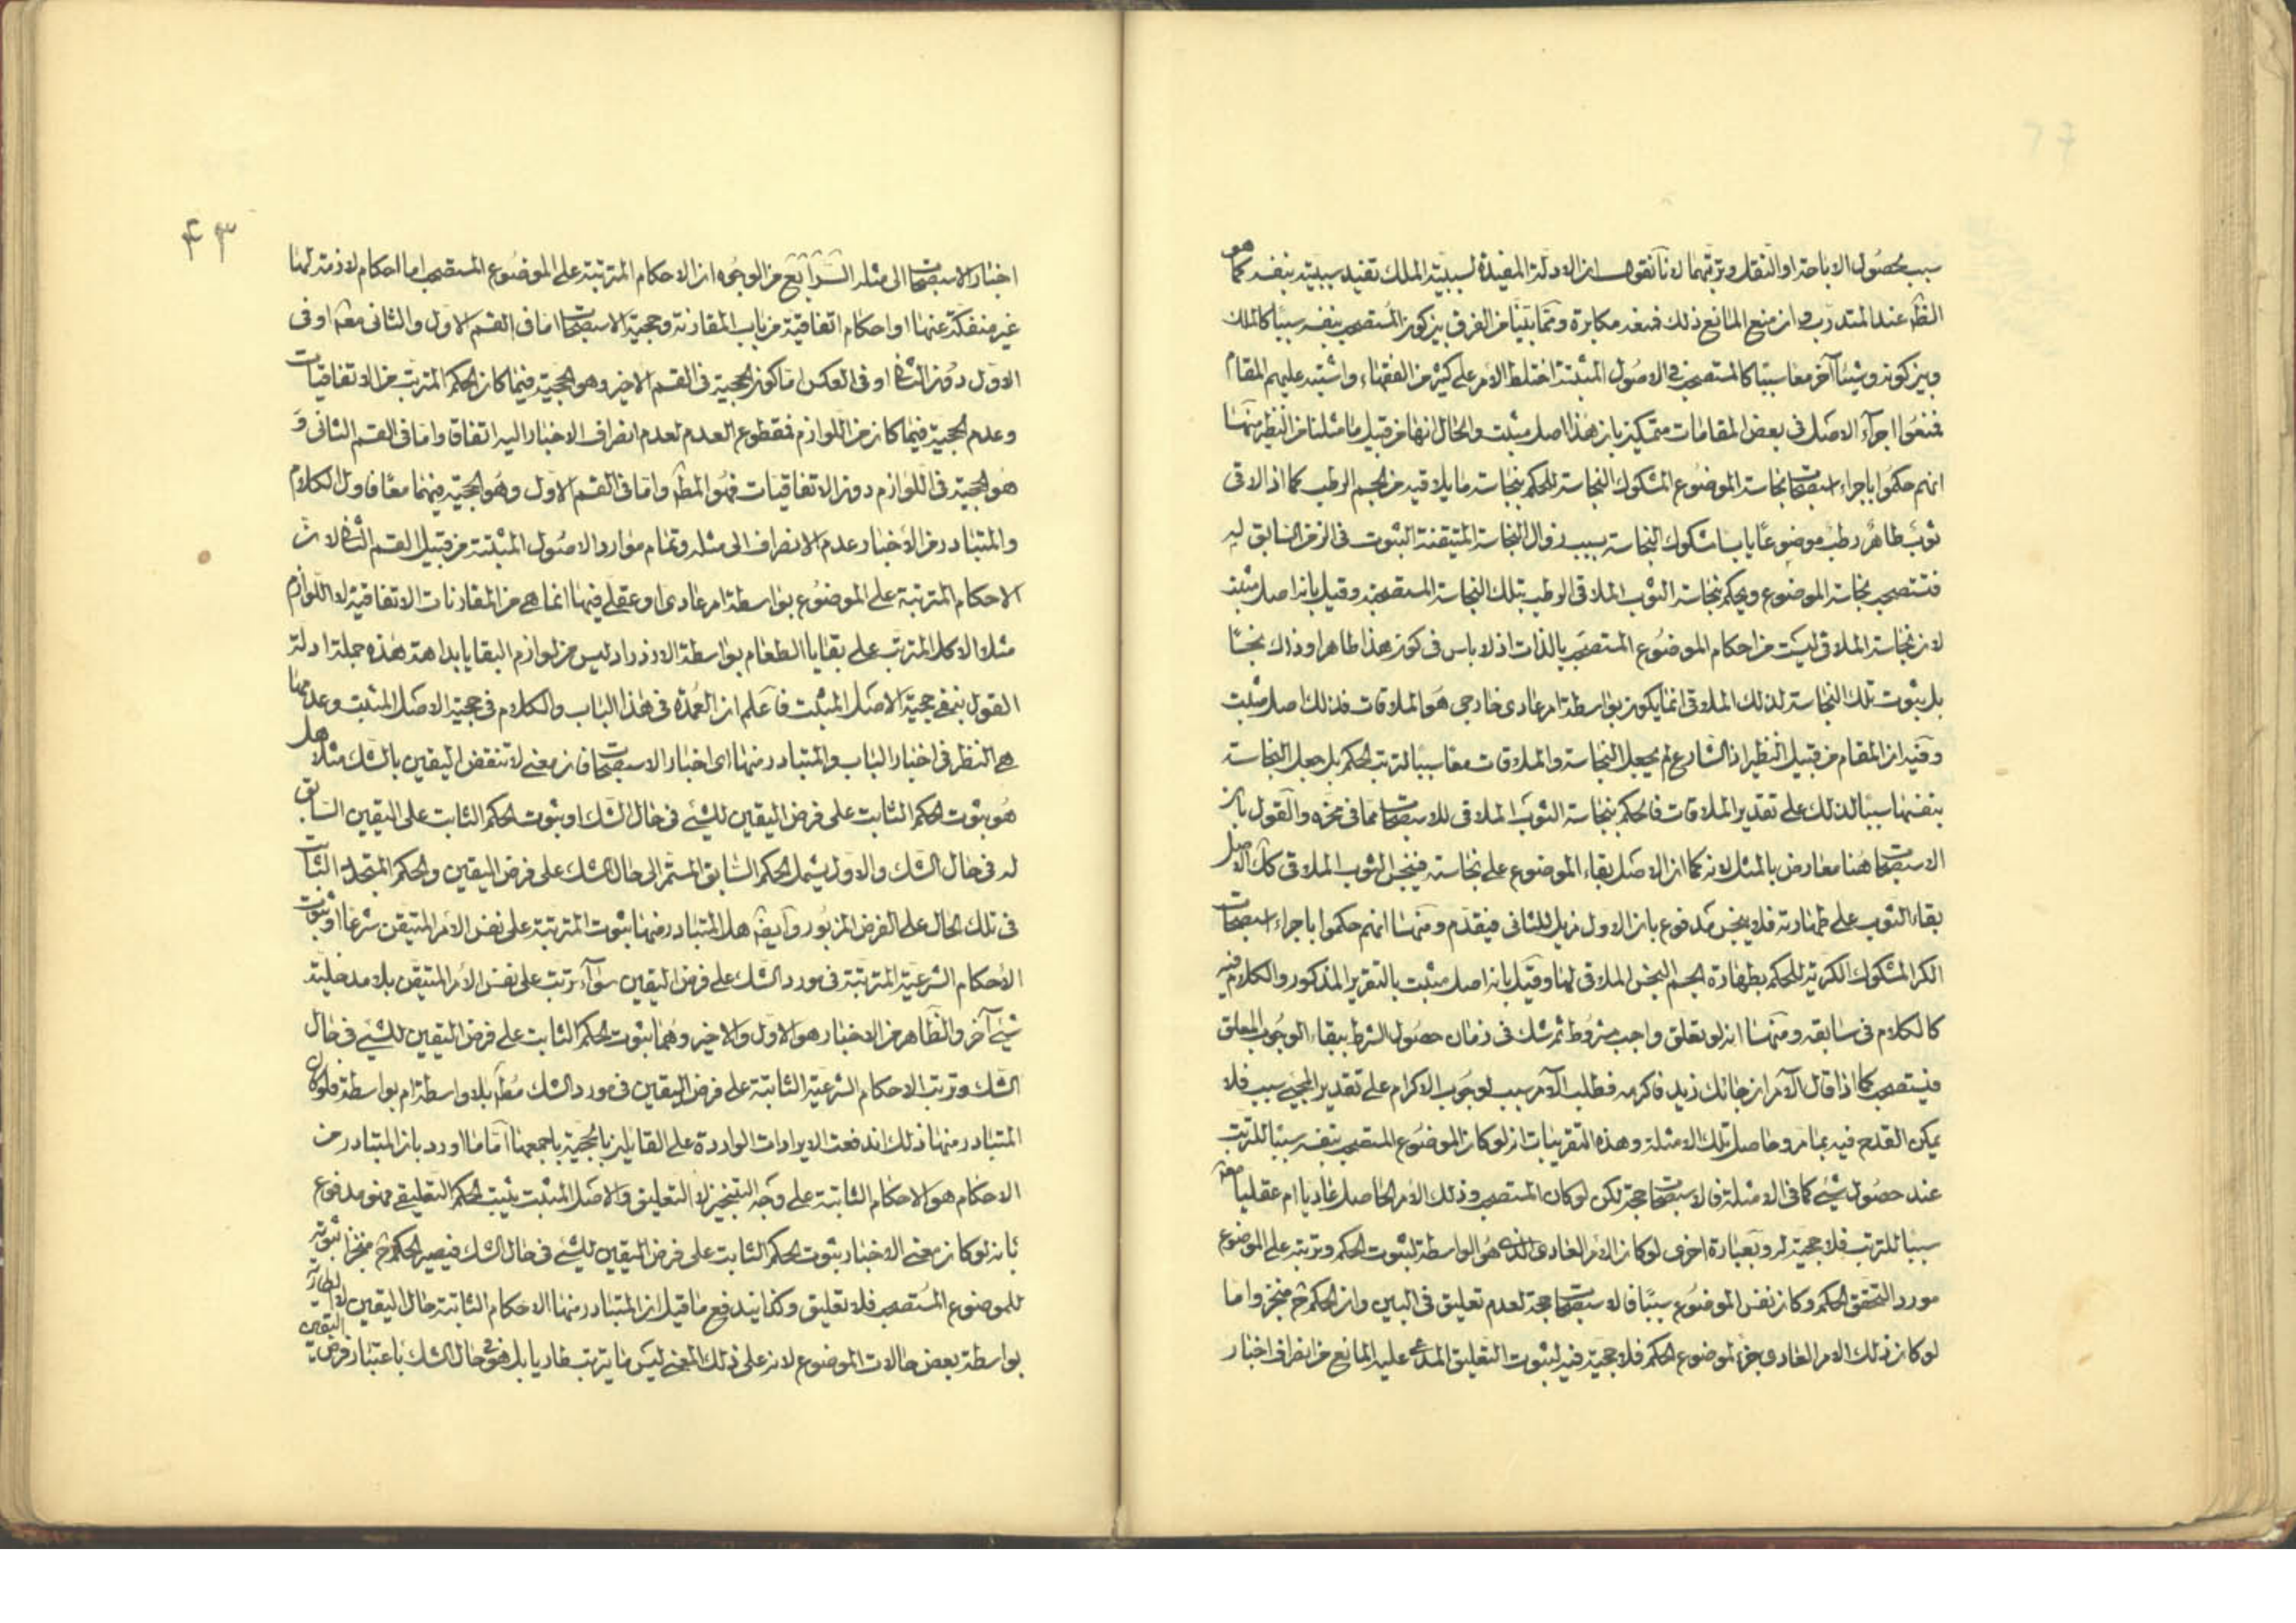 سبب حصول الاباحة او النقل وترتبهما لانا نقول ان الادلة المفيدة لسببية الملك تفيد سببيته بنفسه كما هو
الظ عند المتدرب وان منع المانع ذلك فمنعه مكابرة ومما بينا من الفرق بين كون المستصحب بنفسه سببا كالملك
وبين كونه وشيئا آخر معا سببا كالمستصحب في الاصول المثبتة اختلط الامر على كثير من الفقهاء واشتبه عليهم المقام
فمنعوا اجرآء الاصل في بعض المقامات متمسكين بان هذا اصل مثبت والحال انها من قبيل ما مثلنا من النظير منها
انهم حكموا باجراء استصحاب نجاسة الموضوع المشكوك النجاسة للحكم بنجاسة ما يلاقيه من الجسم الرطب كما اذا لاقى
ثوب طاهر رطب موضوعا يابسا مشكوك النجاسة بسبب زوال النجاسة المتيقنة الثبوت في الزمن السابق ليه
فتستصحب نجاسة الموضوع ويحكم بنجاسة الثوب الملاقى الرطب بتلك النجاسة المستصحبة وقيل بانه اصل مثبت
لان نجاسة الملاقى ليست من احكام الموضوع المستصحب بالذات اذ لا باس في كون هذا طاهرا وذاك نجسا
بل ثبوت تلك النجاسة لذلك الملاقى انما يكون بواسطة امر عادى خارجى هو الملاقات فذلك اصل مثبت
وفيه ان المقام من قبيل النظير اذ الشارع لم يجعل النجاسة والملاقات معا سببا لترتب الحكم بل جعل النجاسة
بنفسها سببا لذلك على تقدير الملاقات فالحكم بنجاسة الثوب الملاقى للاستصحاب مما في محزه والقول بان
الاستصحاب هنا معارض بالمثل لانه كما ان الاصل بقاء الموضوع على نجاسته فينجس الثوب الملاقى كك الاصل
بقاء الثوب على طهارته فلا ينجس مدفوع بان الاول مزيل للثانى فيقدم ومنها انهم حكموا باجراء استصحاب
الكر المشكوك الكرية للحكم بطهارة الجسم النجس الملاقى لها وقيل بانه اصل مثبت بالتقرير المذكور والكلام فيه
كالكلام في سابقه ومنها انه لو تعلق واجب مشروط ثم شك في زمان حصول الشرط ببقاء الوجوب المعلق
فيستصحب كما اذا قال الآمر ان جائك زيد فاكرمه فطلب الآمر سبب لوجوب الاكرام على تقدير المجيئ سبب فلا
يمكن القدح فيه بما مر وحاصل تلك الامثلة وهذه التقريبات ان لو كان الموضوع المستصحب بنفسه سببا للترتب
عند حصول شيئ كما في الامثلة فالاستصحاب حجة لكن لو كان المستصحب وذلك الامر الحاصل عاديا ام عقليا معا
سببا للترتب فلا حجية له وبعبارة اخرى لو كان الامر العادى الذى هو الواسطة لثبوت الحكم وترتبه على الموضوع
مورد التحقق الحكم وكان نفس الموضوع سببا فالاستصحاب حجة لعدم تعليق في البين وان الحكم ح منجز واما
لو كان ذلك الامر العادى جزء لموضوع الحكم فلا حجية فيه لثبوت التعليق المدعى عليه المانع من انصراف اخبار
۴۳
اخبار الاستصحاب الى مثله الرآبع من الوجوه ان الاحكام المترتبة على الموضوع المستصحب اما احكام لازمة لها
غير منفكة عنها او احكام اتفاقية من باب المقارنة وحجية الاستصحاب اما في القسم الاول والثانى معا او في
الاول دون الثانى او في العكس اما كون الحجية في القسم الاخير وهو الحجية فيما كان الحكم المترتب من الاتفاقيات
وعدم الحجية فيما كان من اللوازم فمقطوع العدم لعدم انصراف الاخبار اليه اتفاقا واما في القسم الثانى و
هو الحجية في اللوازم دون الاتفاقيات فهو المط واما في القسم الاول وهو الحجية فيهما معا فاول الكلام
والمتبادر من الاخبار عدم الانصراف الى مثله وتمام موارد الاصول المثبتة من قبيل القسم الثانى لان
الاحكام المترتبة على الموضوع بواسطة امر عادى او عقلى فيها انما هى من المقارنات الاتفاقية لا اللوازم
مثلا الاكل المترتب على بقايا الطعام بواسطة الازدراد ليس من لوازم البقايا بداهة هذه جملة ادلة
القول بنفى حجية الاصل المثبت فاعلم ان العمدة في هذا الباب والكلام في حجية الاصل المثبت وعدمها
هى النظر في اخبار الباب والمتبادر منها اى اخبار الاستصحاب فان معنى لا تنقض اليقين بالشك مثلا هل
هو ثبوت الحكم الثابت على فرض اليقين للشيئ في حال الشك او ثبوت الحكم الثابت على اليقين السابق
له في حال الشك والاول يشمل الحكم السابق المستمر الى حال الشك على فرض اليقين والحكم المتجدد الثابت
في تلك الحال على الفرض المزبور وايضا هل المتبادر منها ثبوت المترتبة على نفس الامر المتيقن شرعا او ثبوت
الاحكام الشرعية المترتبة في مورد الشك على فرض اليقين سوآء ترتب على نفس الامر المتيقن بلا مدخلية
شيئ آخر والظاهر من الاخبار هو الاول والاخير وهما ثبوت الحكم الثابت على فرض اليقين للشيئ في حال
الشك وترتب الاحكام الشرعية الثابتة على فرض اليقين في مورد الشك مط بلا واسطة ام بواسطة فلو كان
المتبادر منها ذلك اندفعت الايرادات الواردة على القائلين بالحجية باجمعها اما ما اورد بان المتبادر من
الاحكام هو الاحكام الثابتة على وجه التنجيز لا التعليق والاصل المثبت يثبت الحكم التعليقى فهو مدفوع
بانه لو كان معنى الاخبار ثبوت الحكم الثابت على فرض اليقين للشيئ في حال الشك فيصير الحكم ح منجزا ثبوته
للموضوع المستصحب فلا تعليق وكذا يندفع ما قيل ان المتبادر منها الاحكام الثابتة حال اليقين لا الطارية
بواسطة بعض حالات الموضوع لانه على ذلك المعنى ليس ما يترتب طاريا بل هو في حال الشك باعتبار فرض اليقين